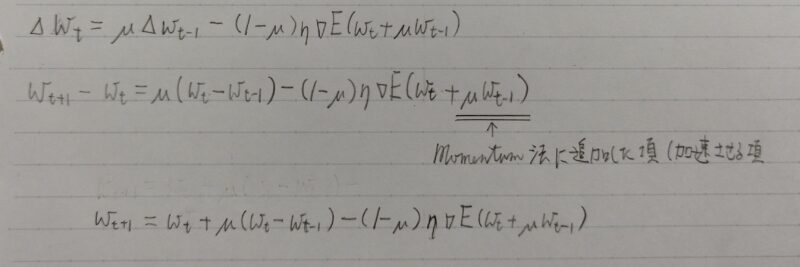 ΔW_t = μΔW_{t-1} - (1-μ)η∇E(W_t+μW_{t-1})
W_{t+1} - W_t = μ(W_t-W_{t-1}) - (1-μ)η∇E(W_t+μW_{t-1})
↑
Momentum 法に追加した項 (加速させる項
W_{t+1} = W_t + μ(W_t-W_{t-1}) - (1-μ)η∇E(W_t+μW_{t-1})